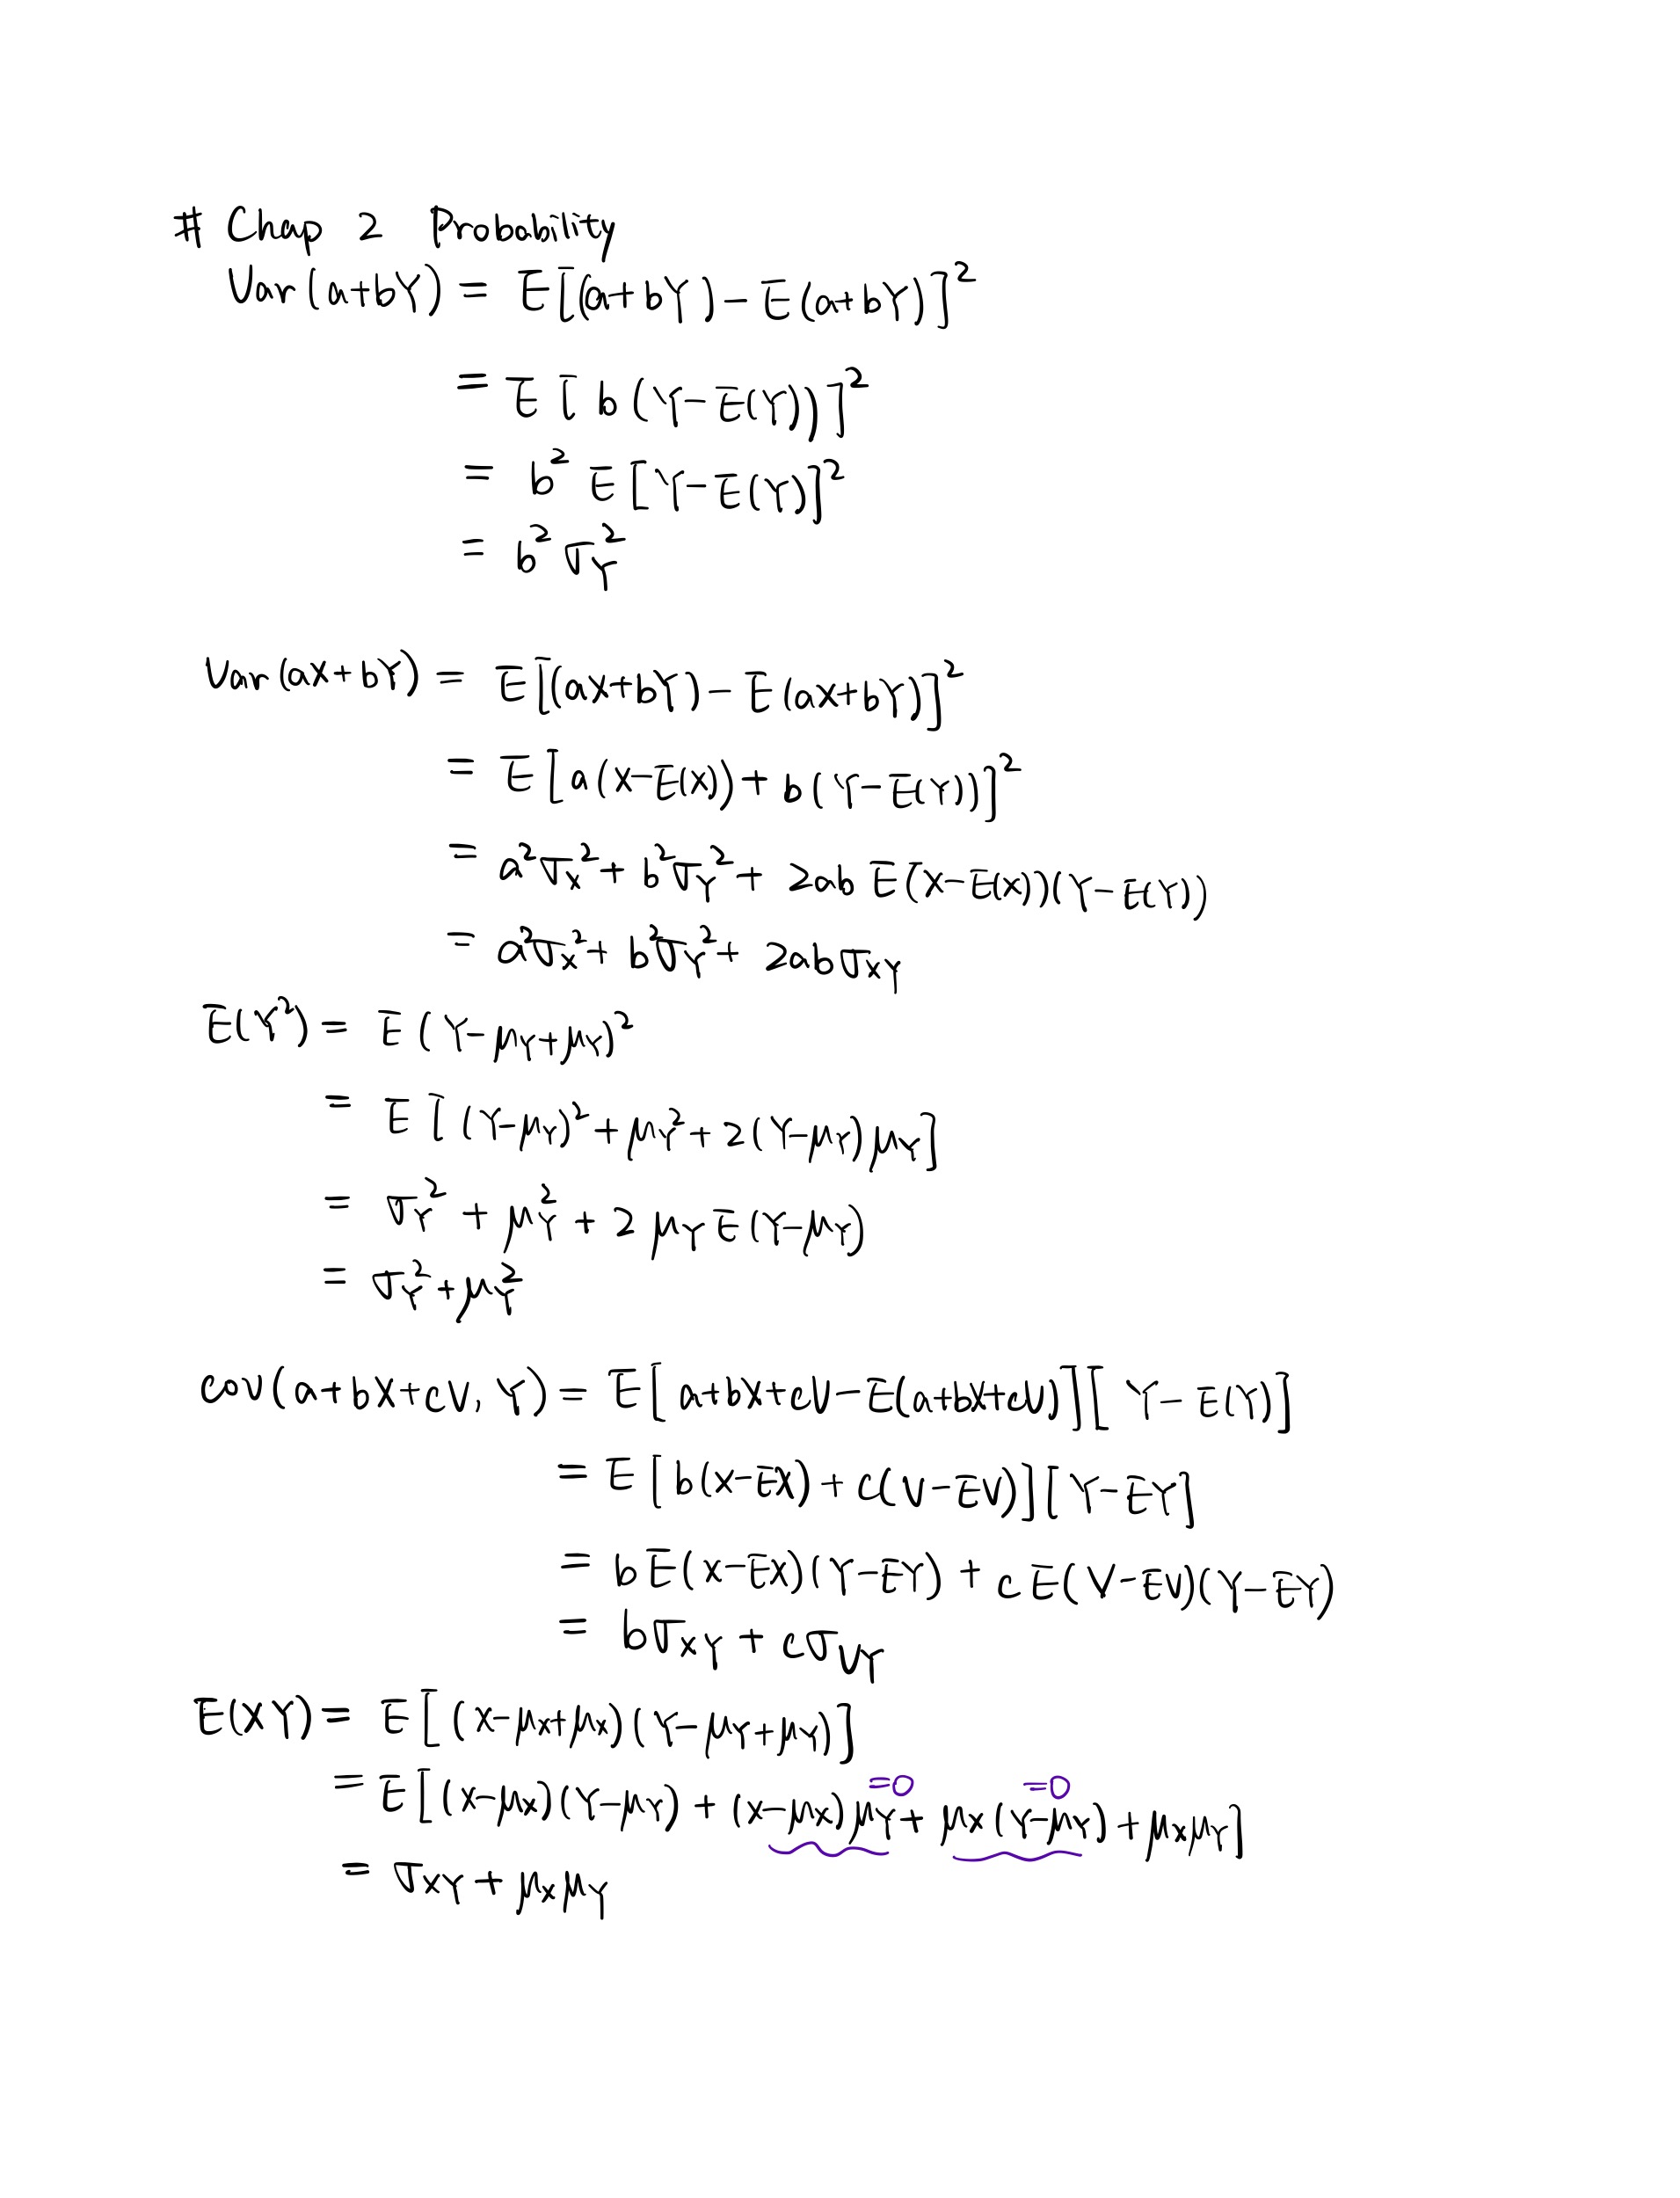 # Chap 2 Probability
Var(a+bY) = E[(a+bY) - E(a+bY)]²
= E[b(Y-E(Y))]²
= b² E[Y-E(Y)]²
= b² σ_Y²
Var(aX+bY) = E[(aX+bY) - E(aX+bY)]²
= E[a(X-E(X)) + b(Y-E(Y))]²
= a²σ_X² + b²σ_Y² + 2ab E(X-E(X))(Y-E(Y))
= a²σ_X² + b²σ_Y² + 2abσ_XY
E(Y²) = E(Y-μ_Y+μ_Y)²
= E[(Y-μ_Y)² + μ_Y² + 2(Y-μ_Y)μ_Y]
= σ_Y² + μ_Y² + 2μ_Y E(Y-μ_Y)
= σ_Y² + μ_Y²
cov(a+bX+cV, Y) = E[a+bX+cV-E(a+bX+cV)][Y-E(Y)]
= E[b(X-EX) + c(V-EV)][Y-EY]
= bE(X-EX)(Y-EY) + cE(V-EV)(Y-EY)
= bσ_XY + cσ_VY
E(XY) = E[(X-μ_X+μ_X)(Y-μ_Y+μ_Y)]
=0 =0
= E[(X-μ_X)(Y-μ_Y) + (X-μ_X)μ_Y + μ_X(Y-μ_Y) + μ_Xμ_Y]
= σ_XY + μ_Xμ_Y